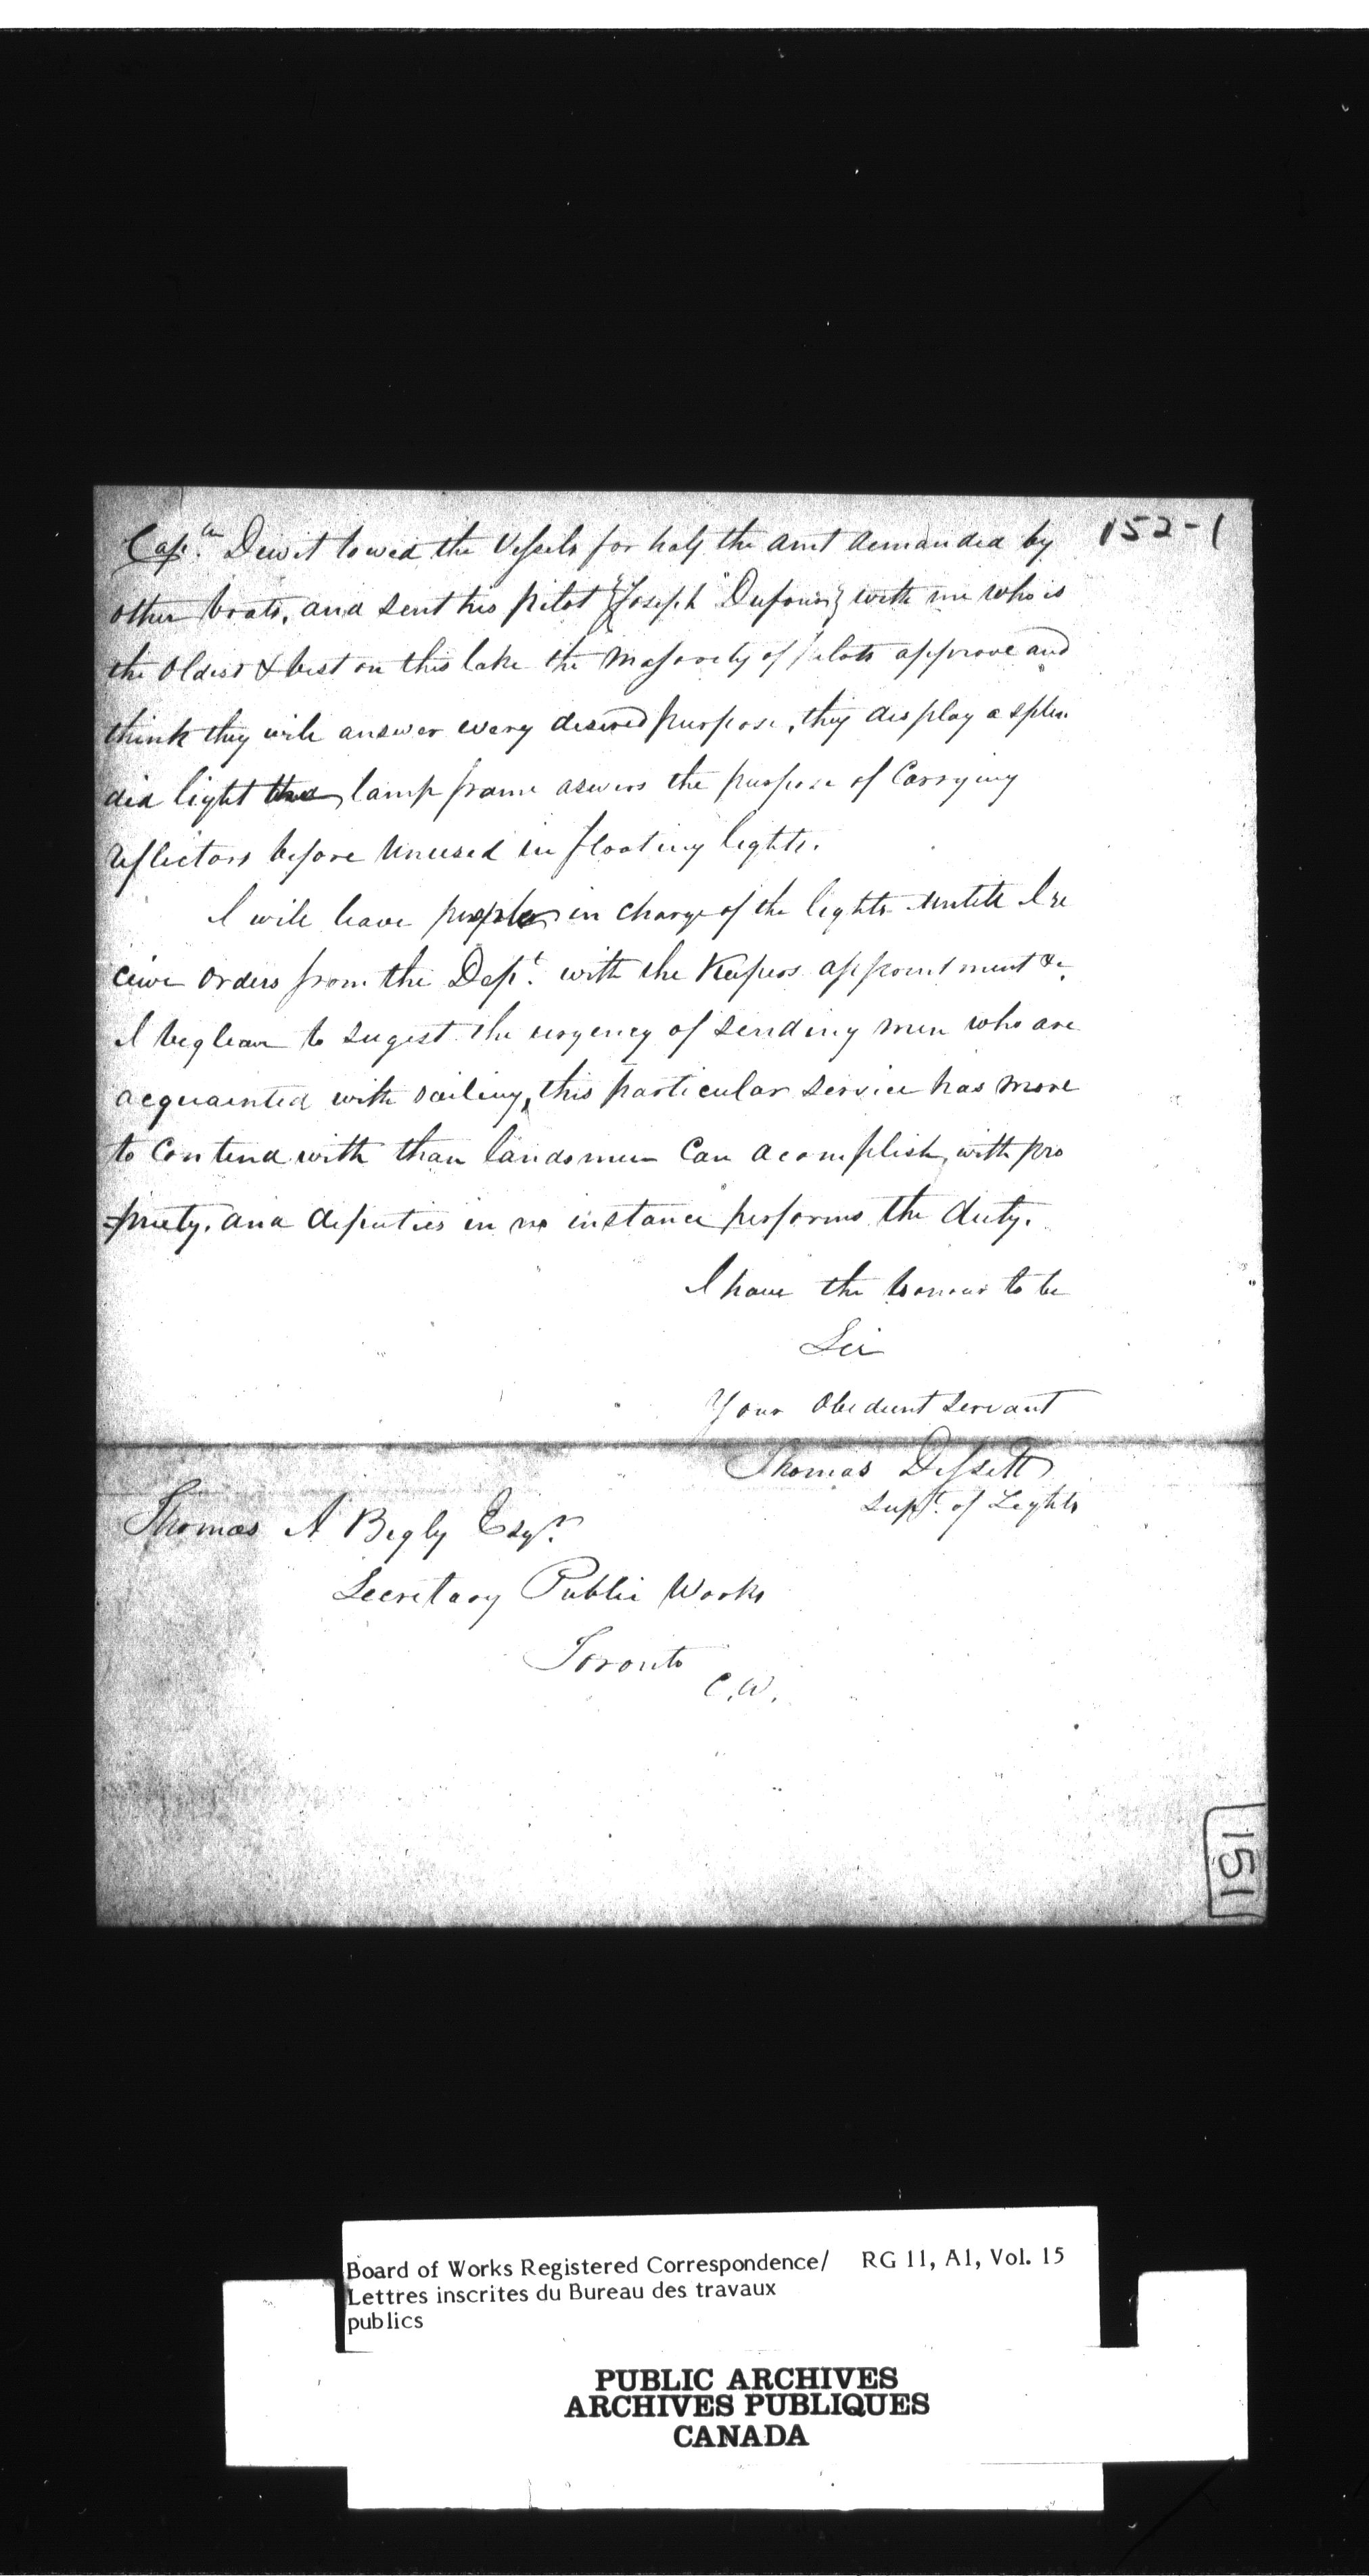 152-1
Cap.tn Dewit towed the Vessels for half the amt demanded by
other boats, and sent his pilot {Joseph Dufour} with me who is
the oldest & best on this lake the majority of pilots approve and
think they will answer every desired purpose, they display a splen
did light the lamp frame aswers the purpose of Carrying
reflectors before unused in floating lights.
I will leave people in charge of the lights untill I re
ceive orders from the Dept. with the Keepers appointment &c
I beg leave to sugest the urgency of sending men who are
acquainted with sailing, this particular service has more
to Contend with than landsmen Can acomplish, with pro
=priety, and deputies in no instance performs the duty.
I have the honour to be
Sir
Your obedient servant
Thomas
Supt. of Lights
Thomas A Begly Esqr.
Secretary Public Works
Toronto
C.W.
151
Board of Works Registered Correspondence/ RG 11, A1, Vol. 15
Lettres inscrites du Bureau des travaux
publics
PUBLIC ARCHIVES
ARCHIVES PUBLIQUES
CANADA